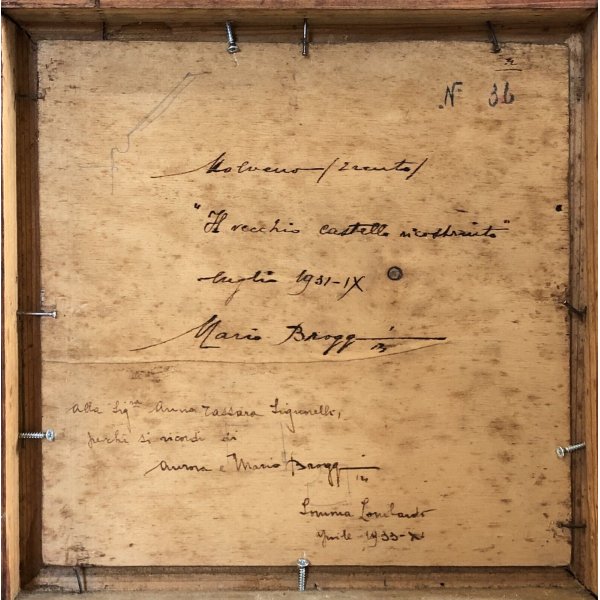 N° 36
Molveno (Trento)
"Il vecchio castello ricostruito"
luglio 1931-IX
Mario Broggini
alla Sigra Anna Tassara Signorelli,
perché si ricordi di
Aurora e Mario Broggini
Somma Lombardo
Aprile 1933-XI